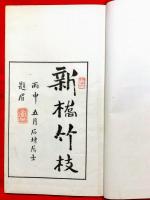 新橋竹枝
丙申五月石埭居士
題眉